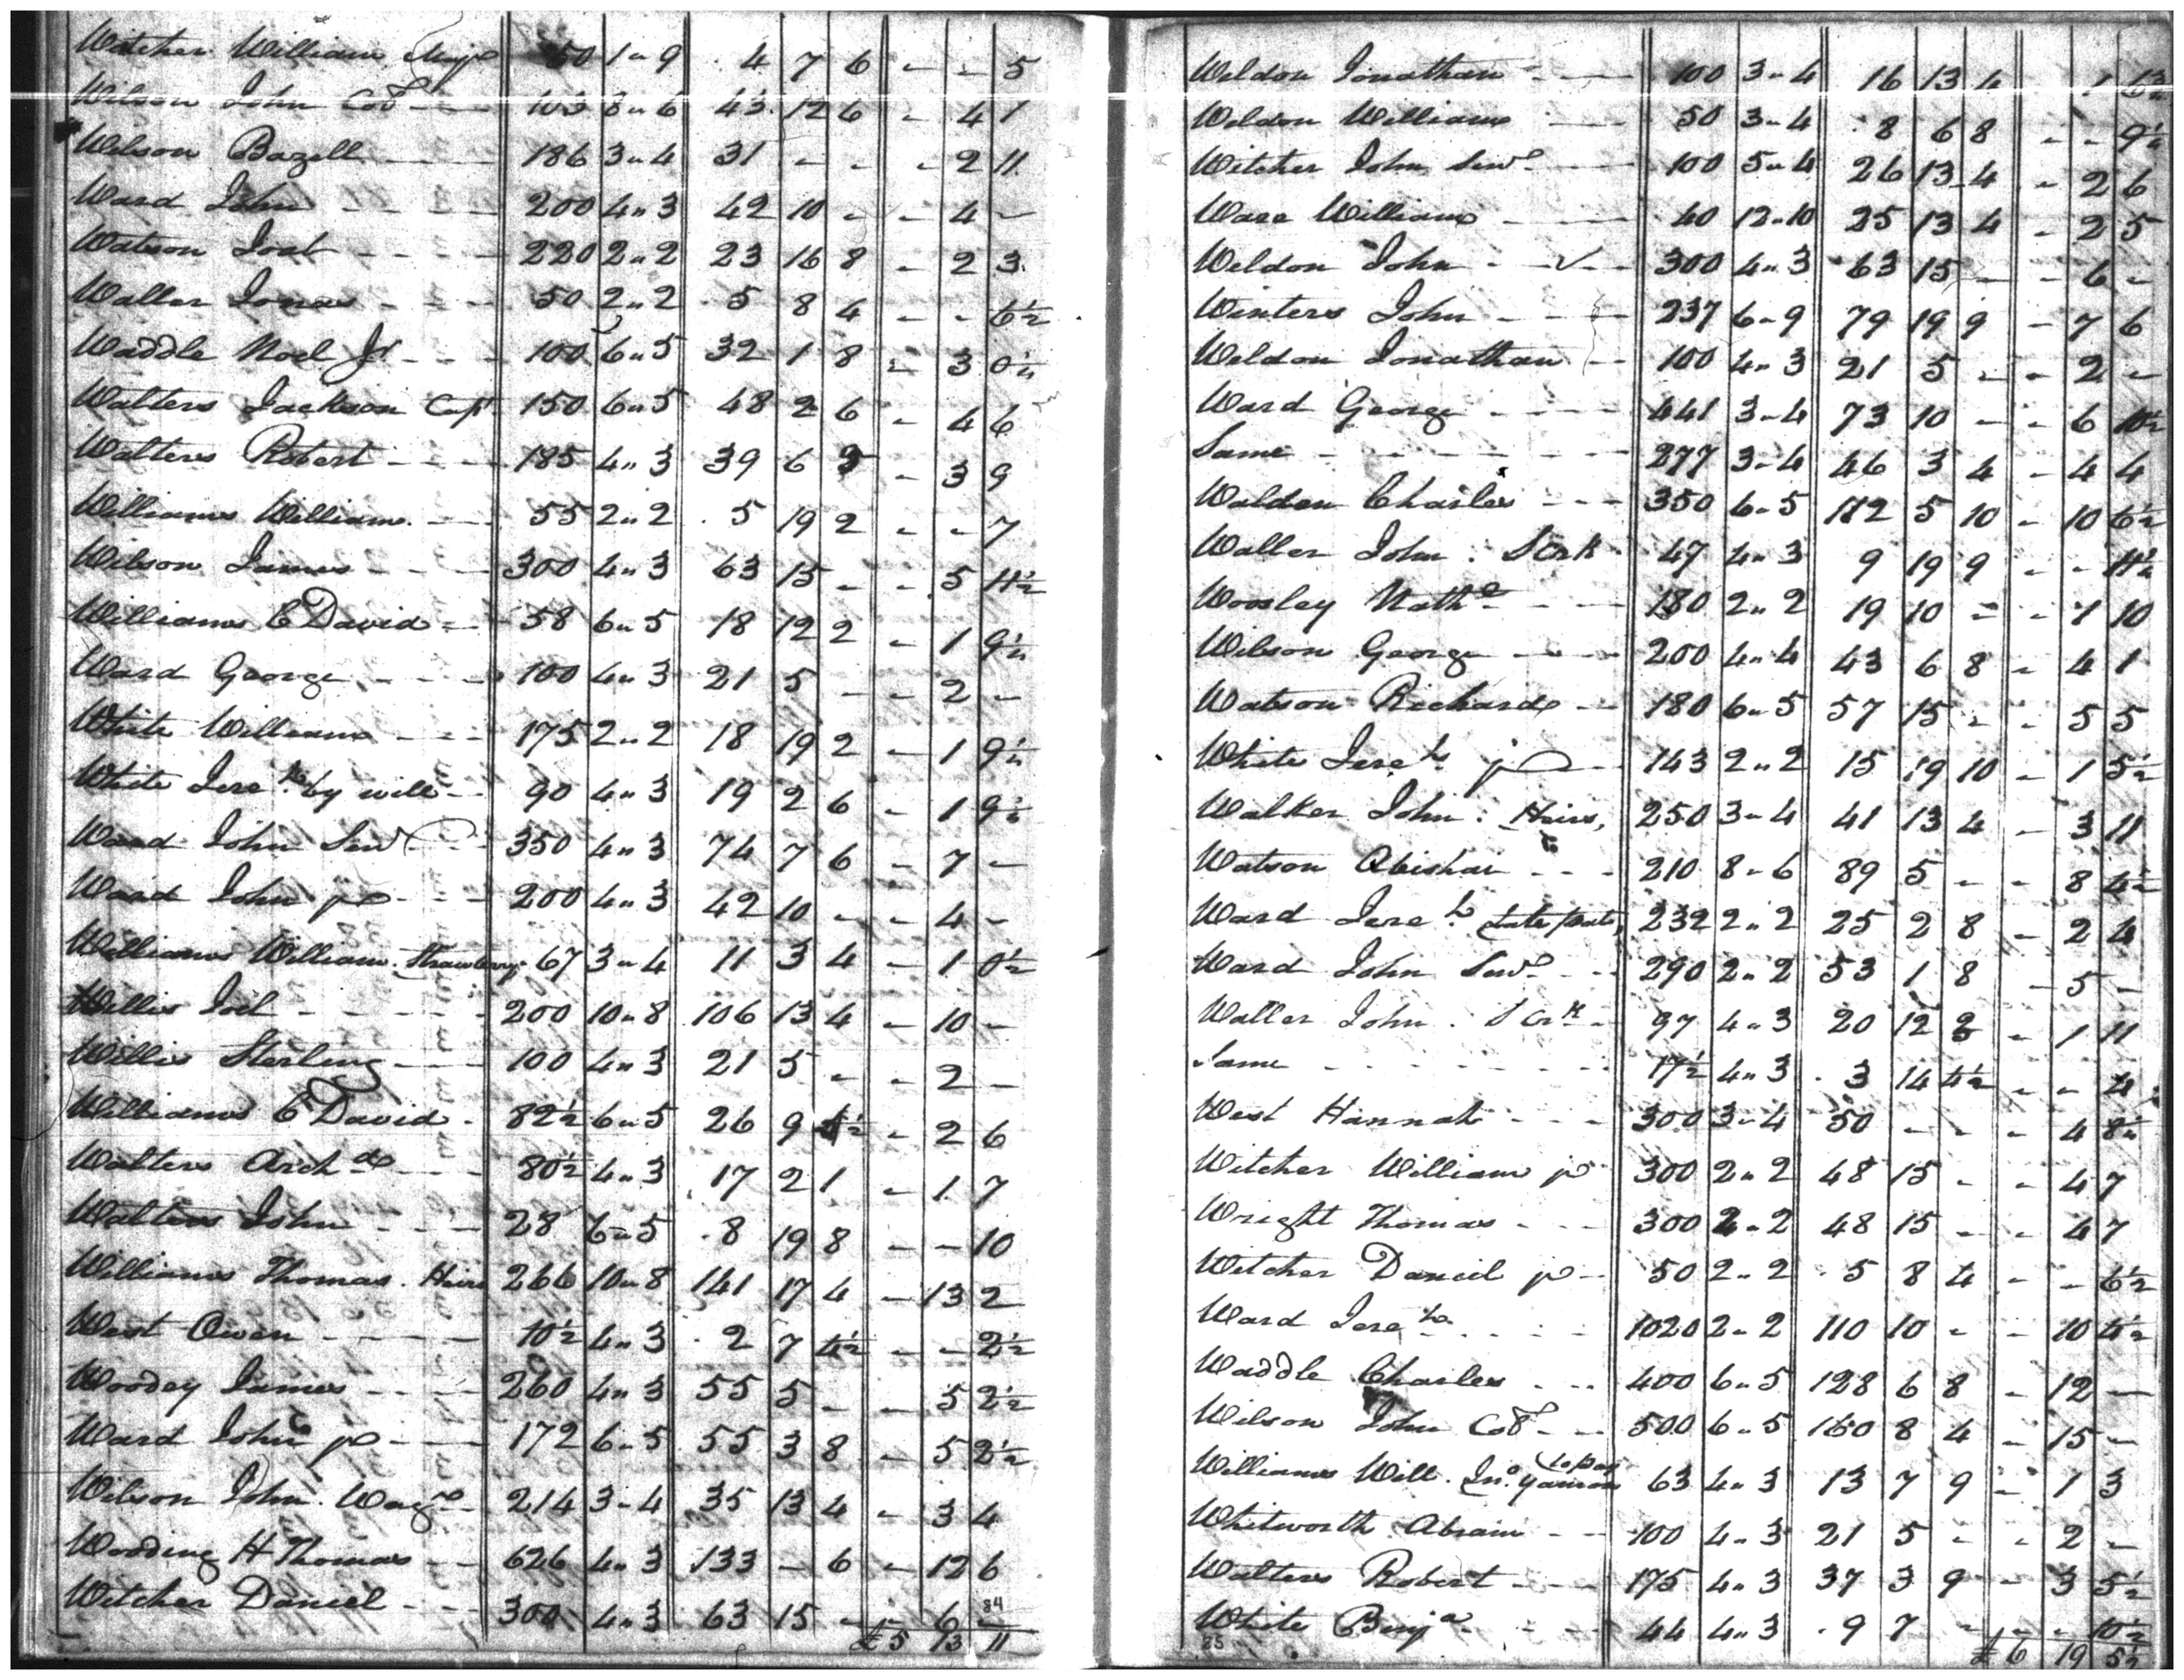 Witcher William Majr 50 1 " 9 4 7 6 - - 5
Wilson John Col 103 8 " 6 43 12 6 - 4 1
Wilson Bazell 186 3 " 4 31 - - - 2 11
Ward John 200 4 " 3 42 10 - - 4 -
Watson Joab 220 2 " 2 23 16 8 - 2 3
Waller Jonas 50 2 " 2 5 8 4 - - 6½
Waddle Noel Jr 100 6 " 5 32 1 8 - 3 0¼
Walters Jackson Capt 150 6 " 5 48 2 6 - 4 6
Walters Robert 185 4 " 3 39 6 3 - 3 9
Williams William 55 2 " 2 5 19 2 - - 7
Wilson James 300 4 " 3 63 15 - - 5 11½
Williams C David 58 6 " 5 18 12 2 - 1 9¼
Ward George 100 4 " 3 21 5 - - 2 -
White William 175 2 " 2 18 19 2 - 1 9¼
White Jereh by will 90 4 " 3 19 2 6 - 1 9½
Ward John Senr 350 4 " 3 74 7 6 - 7 -
Ward John jr 200 4 " 3 42 10 - - 4 -
Williams William Strawberry 67 3 " 4 11 3 4 - 1 0½
Willis Joel 200 10 " 8 106 13 4 - 10 -
Willis Sterling 100 4 " 3 21 5 - - 2 -
Williams C David 82½ 6 " 5 26 9 4½ - 2 6
Walters Archd 80½ 4 " 3 17 2 1 - 1 7
Walters John 28 6 " 5 8 19 8 - - 10
Williams Thomas Heirs 266 10 " 8 141 17 4 - 13 2
West Owen 10½ 4 " 3 2 7 4½ - - 2½
Woodey James 260 4 " 3 55 5 - - 5 2½
Ward John jr 172 6 " 5 55 3 8 - 5 2½
Wilson John Wagr 214 3 " 4 35 13 4 - 3 4
Wooding H Thomas 626 4 " 3 133 - 6 - 12 6
Witcher Daniel 300 4 " 3 63 15 - - 6 -
84
£ 5 13 11
Weldon Jonathan 100 3 " 4 16 13 4 1 6¾
Weldon William 50 3 " 4 8 6 8 - - 9¼
Witcher John Senr 100 5 " 4 26 13 4 - 2 6
Ware William 40 12 " 10 25 13 4 - 2 5
Weldon John 300 4 " 3 63 15 - - 6 -
Winters John 237 6 " 9 79 19 9 - 7 6
Weldon Jonathan 100 4 " 3 21 5 - - 2 -
Ward George 441 3 " 4 73 10 - - 6 10½
Same 277 3 " 4 46 3 4 - 4 4
Walden Charles 350 6 " 5 112 5 10 - 10 6½
Waller John S Crk 47 4 " 3 9 19 9 - - 11¼
Woosley Nathl 180 2 " 2 19 10 - - 1 10
Wilson George 200 4 " 4 43 6 8 - 4 1
Watson Richard 180 6 " 5 57 15 - - 5 5
White Jereh jr 143 2 " 2 15 19 10 - 1 5½
Walker John Heirs 250 3 " 4 41 13 4 - 3 11
Watson Abishai 210 8 " 6 89 5 - - 8 4½
Ward Jereh 232 2 " 2 25 2 8 - 2 4
Ward John Senr 290 2 " 2 53 1 8 - 5 -
Waller John S Crk 97 4 " 3 20 12 3 - 1 11
Same 17½ 4 " 3 3 14 4½ - - 4
West Hannah 300 3 " 4 50 - - - 4 8¼
Witcher William jr 300 2 " 2 48 15 - - 4 7
Wright Thomas 300 2 " 2 48 15 - - 4 7
Witcher Daniel jr 50 2 " 2 5 8 4 - - 6½
Ward Jereh 1020 2 " 2 110 10 - - 10 4½
Waddle Charles 400 6 " 5 128 6 8 - 12 -
Wilson John Col 500 6 " 5 160 8 4 - 15 -
Williams Will Jno 63 4 " 3 13 7 9 - 1 3
Whitworth Abram 100 4 " 3 21 5 - - 2 -
Walters Robert 175 4 " 3 37 3 9 - 3 5½
White Benja 44 4 " 3 9 7 - - - 10½
85
£ 6 19 5½